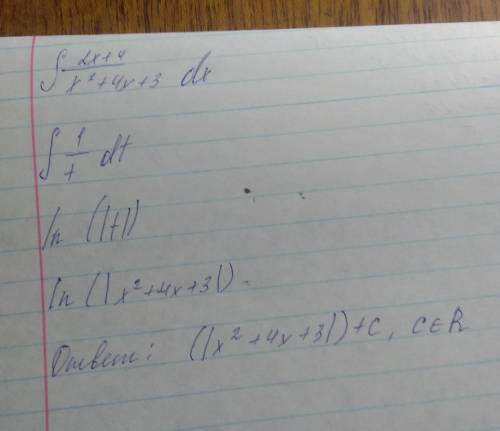 ∫ (2x+4)/(x²+4x+3) dx
∫ 1/t dt
ln (|t|)
ln (|x²+4x+3|).
Ответ: (|x²+4x+3|)+C, C∈R